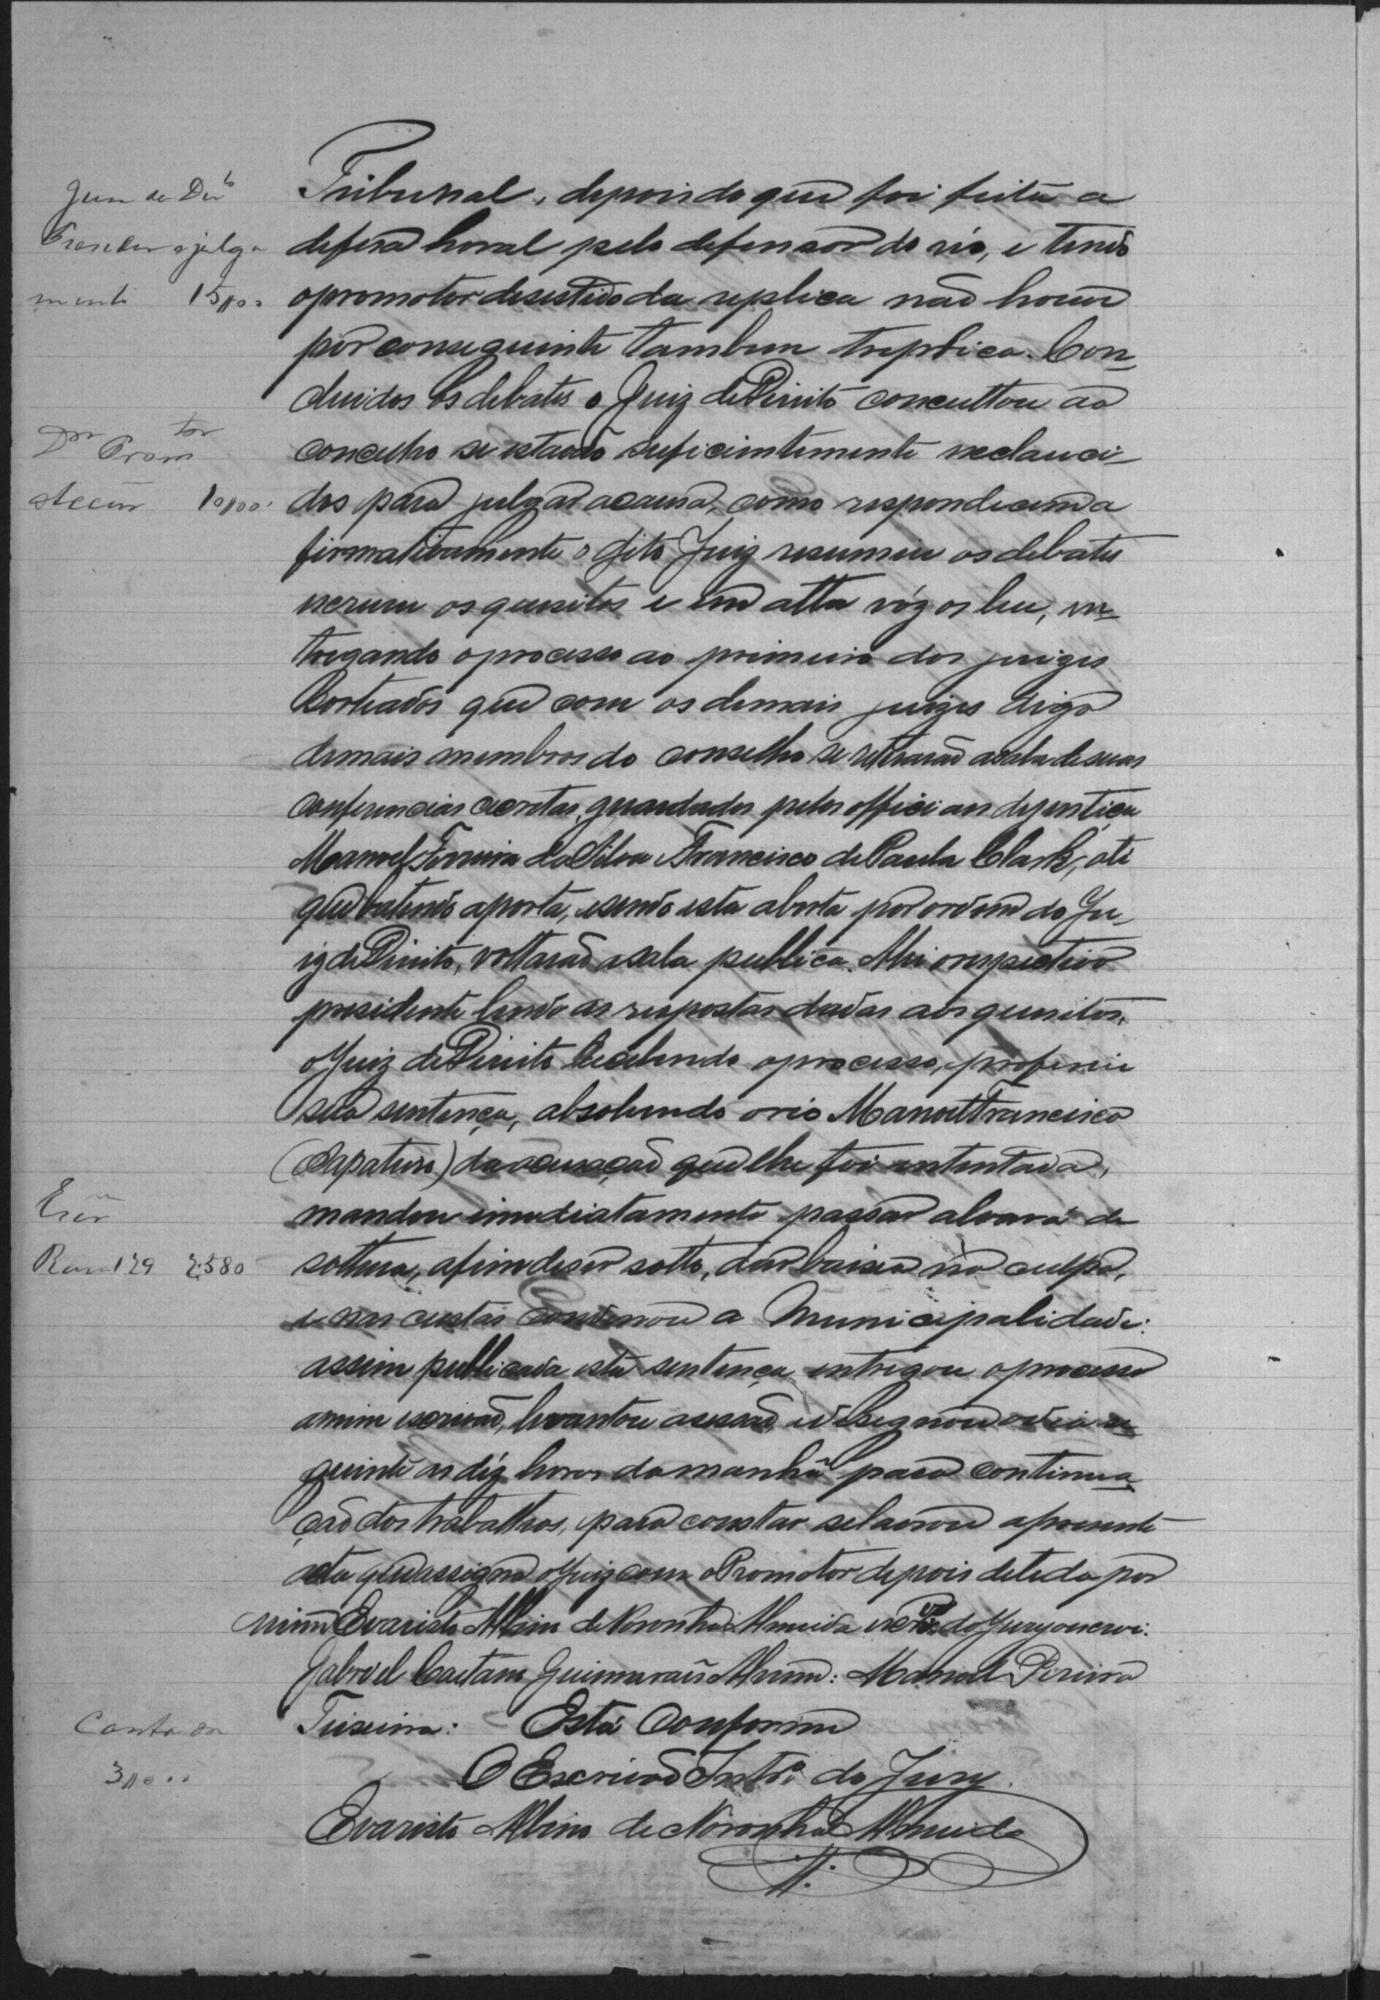 Juis de Dirto
Presiden e julga
mento 15$000
Tribunal, depois do que foi feita a
defesa horal pelo defensor do réo, e tendo
o promotor desestido da replica não houve
por conseguinte tambem treplica. Con-
cluidos os debates o Juiz de Direito consultou ao
Dor Promtor
Accuz 10$000
concelho se estavão suficientemente esclareci-
dos para julgar a causa, como respondecem a
firmativamente o dito Juiz resumiu os debates
escreveu os quesitos e em alta vóz os leu, en-
tregando o processo ao primeiro dos juizes
Sorteados que com os demais juizes digo
demais membros do conselho se retirarão a sala de suas
conferencias cecretas, guardados pelos officiaes de justiça
Manoel Ferreira da Silva e Francisco de Paula Clark, até
que batendo a porta, e sendo esta aberta por ordem do Ju-
iz de Direito, voltarão a sala publica. Ahi o respectivo
presidente lendo as respostas dadas aos quesitos,
o Juiz de Direito recebendo o processo, proferiu
sua sentença, absolvendo o réo Manoel Francisco
(Sapateiro) da accusação que lhe foi intentada,
Escm
Rasa 129 2580
mandou immediatamente passar alvará de
soltura, afim de ser solto, dar baixa na culpa,
e nas custas condenou a Municipalidade:
assim publicada esta sentença entregou o processo
a mim escrivão, levantou a sessão, e designou o dia se
guinte as déz horas da manhã para continua
ção dos trabalhos, para constar se lavrou a presente
acta que assigna o Juiz com o Promotor depois de lida por
mim Evaristo Albino de Noronha Almeida do Jury o escrevi.
Gabriel Caetano Guimarães Alvim: Manoel Pereira
Teixeira: Está Conforme
Contador
3$000
O Escrivão Intro do Jury.
Evaristo Albino de Noronha Almeida